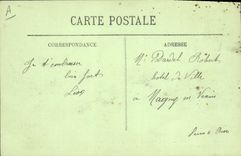 A
CARTE POSTALE
CORRESPONDANCE
ADRESSE
Mr Bardet Robert
Je t'embrasse
hotel de Ville
bien fort
à Magny en Vexin
Seine & Oise